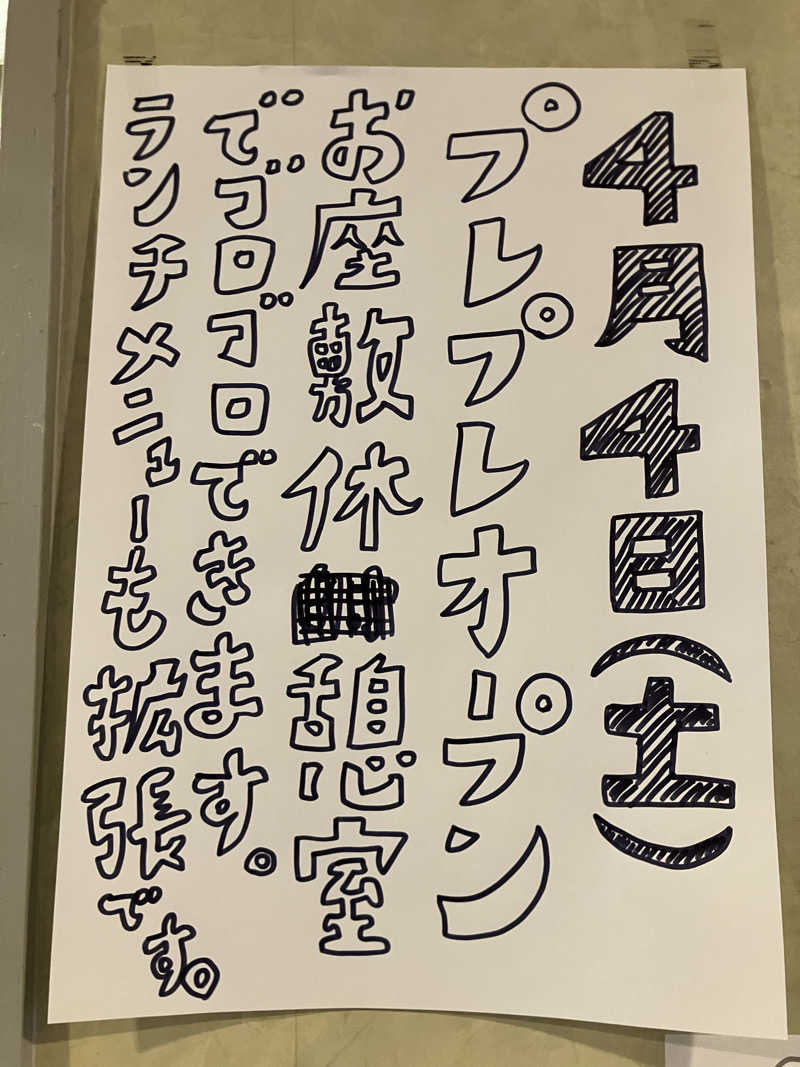 ４月４日(土)
プレプレオープン
お座敷休憩室
でゴロゴロできます。
ランチメニューも拡張です。